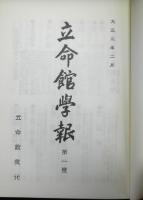 大正三年二月
立命館學報
第一號
立命館發行